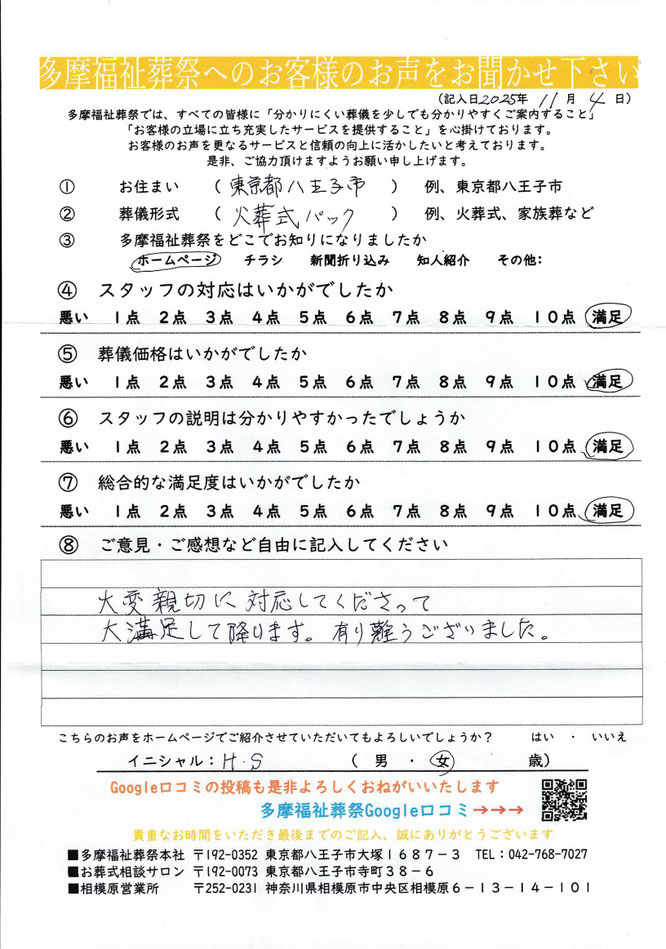 多摩福祉葬祭へのお客様のお声をお聞かせ下さい
(記入日2025年 11月 4日)
多摩福祉葬祭では、すべての皆様に「分かりにくい葬儀を少しでも分かりやすくご案内すること」
「お客様の立場に立ち充実したサービスを提供すること」を心掛けております。
お客様のお声を更なるサービスと信頼の向上に活かしたいと考えております。
是非、ご協力頂けますようお願い申し上げます。
① お住まい ( 東京都八王子市 ) 例、東京都八王子市
② 葬儀形式 ( 火葬式パック ) 例、火葬式、家族葬など
③ 多摩福祉葬祭をどこでお知りになりましたか
ホームページ チラシ 新聞折り込み 知人紹介 その他:
④ スタッフの対応はいかがでしたか
悪い 1点 2点 3点 4点 5点 6点 7点 8点 9点 10点 満足
⑤ 葬儀価格はいかがでしたか
悪い 1点 2点 3点 4点 5点 6点 7点 8点 9点 10点 満足
⑥ スタッフの説明は分かりやすかったでしょうか
悪い 1点 2点 3点 4点 5点 6点 7点 8点 9点 10点 満足
⑦ 総合的な満足度はいかがでしたか
悪い 1点 2点 3点 4点 5点 6点 7点 8点 9点 10点 満足
⑧ ご意見・ご感想など自由に記入してください
大変親切に対応してくださって
大満足して降ります。有り難うございました。
こちらのお声をホームページでご紹介させていただいてもよろしいでしょうか? はい ・ いいえ
イニシャル:H・S ( 男 ・ 女 歳)
Google口コミの投稿も是非よろしくおねがいいたします
多摩福祉葬祭Google口コミ→→→
貴重なお時間をいただき最後までのご記入、誠にありがとうございます
■多摩福祉葬祭本社 〒192-0352 東京都八王子市大塚1687-3 TEL:042-768-7027
■お葬式相談サロン 〒192-0073 東京都八王子市寺町38-6
■相模原営業所 〒252-0231 神奈川県相模原市中央区相模原6-13-14-101